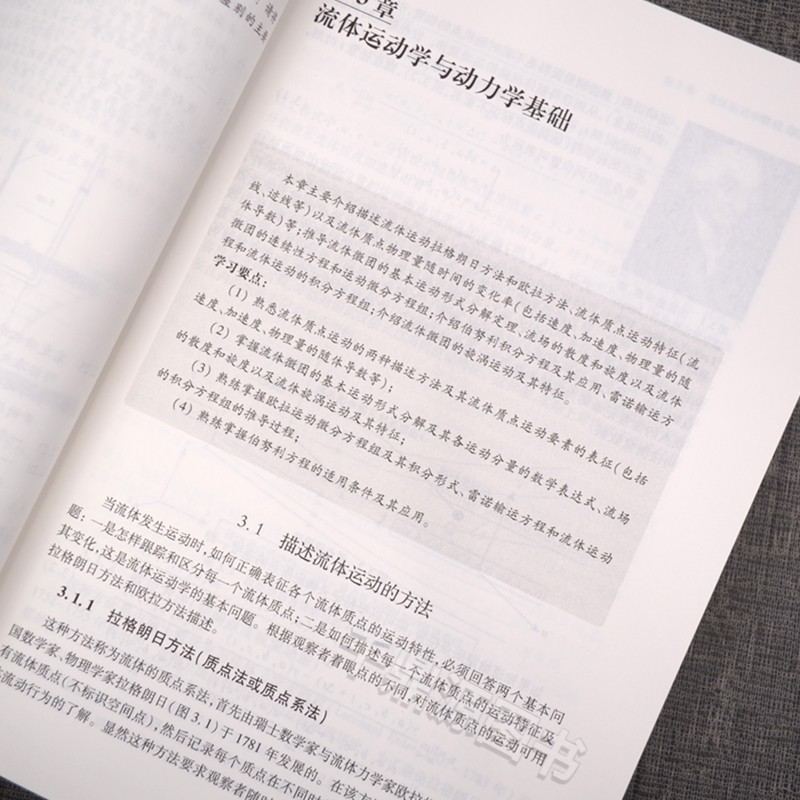 3章
流体运动学与动力学基础
本章主要介绍描述流体运动拉格朗日方法和欧拉方法、流体质点运动特征(流
线、迹线等)以及流体质点物理量随时间的变化率(包括速度、加速度、物理量的随
体导数)等;推导流体微团的基本运动形式分解定理、流场的散度和旋度以及流体
微团的连续性方程和运动微分方程组;介绍伯努利积分方程及其应用、雷诺输运方
程和流体运动的积分方程组;介绍流体微团的旋涡运动及其特征。
学习要点:
(1) 熟悉流体质点运动的两种描述方法及其流体质点运动要素的表征(包括
速度、加速度、物理量的随体导数等);
(2) 掌握流体微团的基本运动形式分解及其各运动分量的数学表达式、流场
的散度和旋度以及流体旋涡运动及其特征;
(3) 熟练掌握欧拉运动微分方程组及其积分形式、雷诺输运方程和流体运动
的积分方程组的推导过程;
(4) 熟练掌握伯努利方程的适用条件及其应用。
3.1 描述流体运动的方法
当流体发生运动时,如何正确表征各个流体质点的运动特性,必须回答两个基本问
题:一是怎样跟踪和区分每一个流体质点;二是如何描述每一个流体质点的运动特征及
其变化,这是流体运动学的基本问题。根据观察者着眼点的不同,对流体质点的运动可用
拉格朗日方法和欧拉方法描述。
3.1.1 拉格朗日方法(质点法或质点系法)
这种方法称为流体的质点系法,首先由瑞士数学家与流体力学家欧拉
国数学家、物理学家拉格朗日(图3.1)于1781年发展的。在该方
有流体质点(不标识空间点),然后记录每个质点在不同时
流动行为的了解。显然这种方法要求观察者随